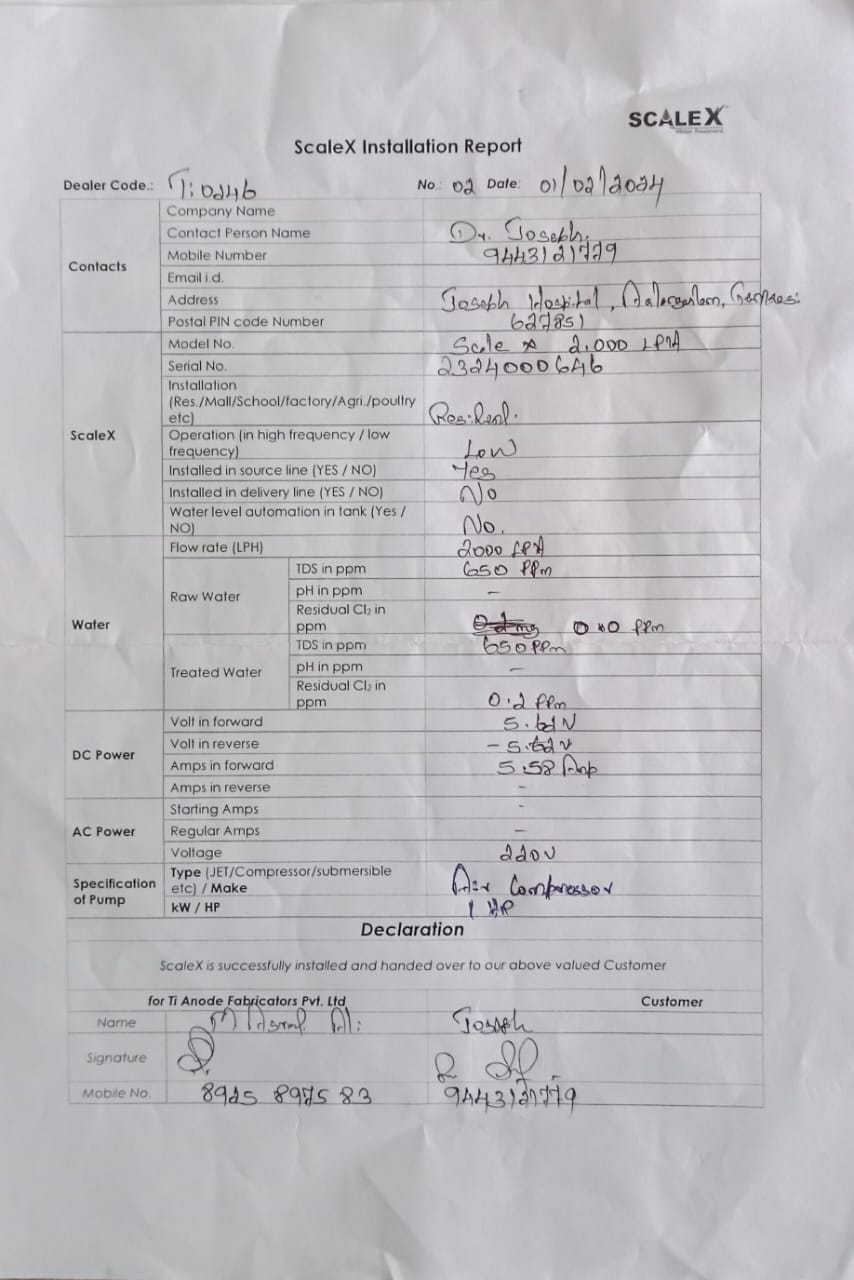 SCALEX
Water Treatment
ScaleX Installation Report
Dealer Code.: Ti0246 No.: 02 Date: 01/02/2024
Contacts
Company Name
Contact Person Name Dr. Joseph.
Mobile Number 9443121779
Email i.d.
Address Joseph Hospital,
Postal PIN code Number 627851
ScaleX
Model No. Scale x 2,000 LPH
Serial No. 2324000646
Installation
(Res./Mall/School/factory/Agri./poultry
etc)
Operation (in high frequency / low
frequency) Low
Installed in source line (YES / NO) Yes
Installed in delivery line (YES / NO) No
Water level automation in tank (Yes /
NO) No.
Water
Flow rate (LPH) 2000 LPH
Raw Water
TDS in ppm 650 PPm
pH in ppm -
Residual Cl2 in
ppm 0.0 PPm
Treated Water
TDS in ppm 650 PPm
pH in ppm -
Residual Cl2 in
ppm 0.2 PPm
DC Power
Volt in forward 5.62V
Volt in reverse -5.62V
Amps in forward 5.58 Amp
Amps in reverse -
AC Power
Starting Amps -
Regular Amps -
Voltage 220V
Specification
of Pump
Type (JET/Compressor/submersible
etc) / Make Air Compressor
kW / HP 1 HP
Declaration
ScaleX is successfully installed and handed over to our above valued Customer
for Ti Anode Fabricators Pvt. Ltd Customer
Name Joseph
Signature
Mobile No. 8925 8975 83 9443121779